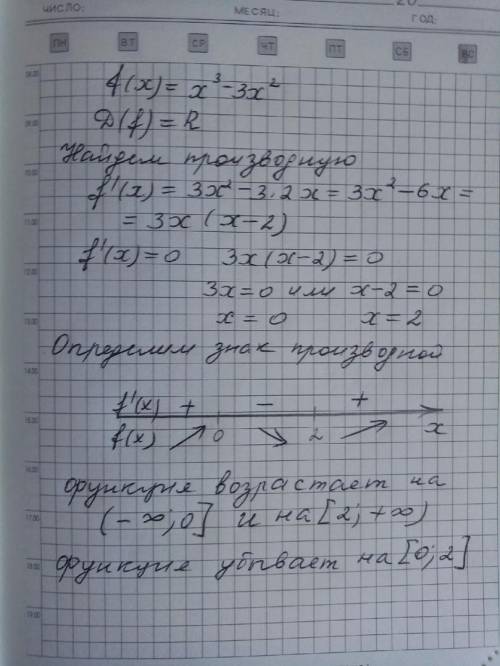 20
ЧИСЛО: МЕСЯЦ: ГОД:
ПН ВТ СР ЧТ ПТ СБ ВС
f(x) = x³ - 3x²
D(f) = R
Найдем производную
f'(x) = 3x² - 3·2x = 3x² - 6x =
= 3x (x-2)
f'(x) = 0 3x(x-2) = 0
3x = 0 или x-2 = 0
x = 0 x = 2
Определим знак производной
f'(x) + - +
f(x) ↗ 0 ↘ 2 ↗ x
функция возрастает на
(-∞; 0] и на [2; +∞)
функция убывает на [0; 2]
08.00
09.00
10.00
11.00
12.00
13.00
14.00
15.00
16.00
17.00
18.00
19.00